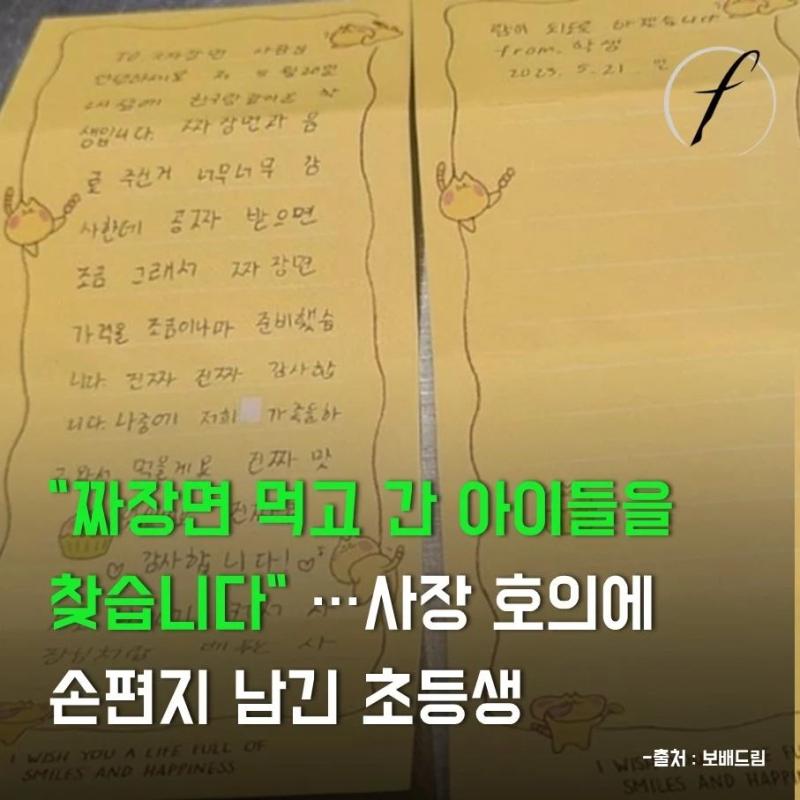 TO. 짜장면 사장님
안녕하세요 저 5월20일
2시쯤에 친구랑 같이온 학
생입니다. 짜장면과 음
료 주신거 너무너무 감
사한데 공짜 받으면
조금 그래서 짜장면
가격을 조금이나마 준비했습
니다. 진짜 진짜 감사합
니다. 나중에 저희 가족들하
고 와서 먹을게요 진짜 맛
감사합니다!
람이 되도록 하겠습니다
from. 학생
2023. 5. 21.
f
"짜장면 먹고 간 아이들을
찾습니다" …사장 호의에
손편지 남긴 초등생
-출처 : 보배드림
I WISH YOU A LIFE FULL OF
SMILES AND HAPPINESS
I WISH FU
SMILES AND HAPPIN